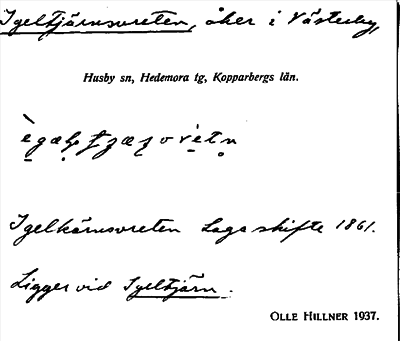 Igeltjärnsvreten, åker i Västerby,
Husby sn, Hedemora tg, Kopparbergs län.
Igelkärnsvreten Laga skifte 1861.
Ligger vid Igeltjärn.
OLLE HILLNER 1937.